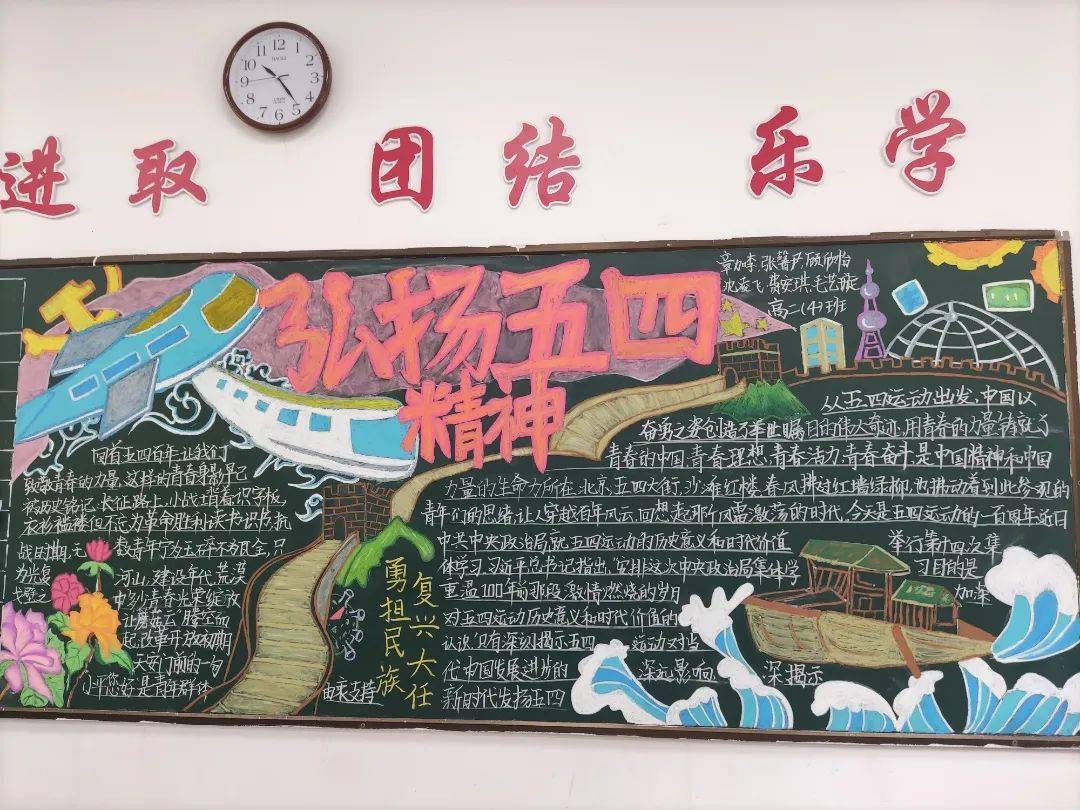 进取 团结 乐学
弘扬五四
精神
高二(4)班
回首五四百年让我们
致敬青春的力量,这样的青春身影早已
被历史铭记,长征路上,小战士背着识字板,
衣衫褴褛但不忘为革命胜利读书识书,抗
战时期,无数青年宁为玉碎不为瓦全,只
为光复
河山,建设年代,荒漠
中多少青春光荣绽放
让蘑菇云腾空而
起,改革开放初期
天安门前的一句
小平您好是青年群体
由来支持
勇担民族
复兴大任
从五四运动出发,中国以
奋勇之姿创造了举世瞩目的伟大奇迹,用青春的力量铸就了
青春的中国,青春理想,青春活力,青春奋斗是中国精神和中国
力量的生命力所在,北京,五四大街,沙滩红楼,春风拂过红墙绿柳,也拂动着到此参观的
青年们的思绪,让人穿越百年风云,回想起那个风雷激荡的时代,今天是五四运动的一百周年近日
中共中央政治局就五四运动的历史意义和时代价值 举行第十四次集
体学习,习近平总书记指出,安排这次中央政治局集体学 习目的是
重温100年前那段激情燃烧的岁月 加深
对五四运动历史意义和时代价值的
认识,只有深刻揭示五四 运动对当
代中国发展进步的 深远影响 深揭示
新时代发扬五四